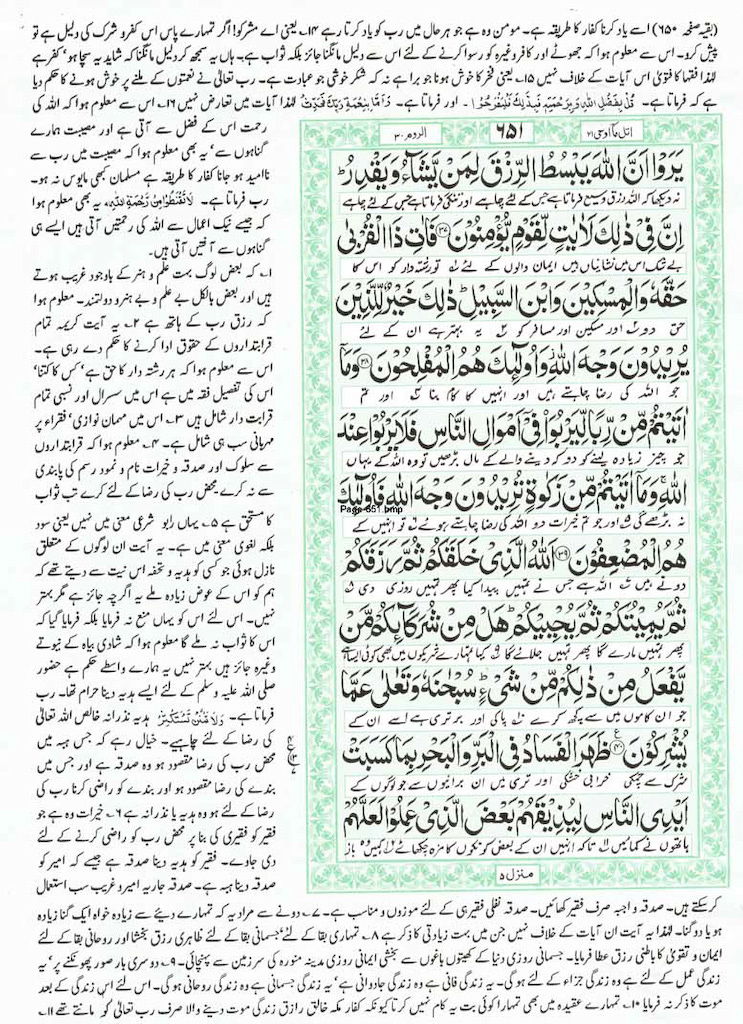 (بقیہ صفحہ ۶۵۰) اسے یاد کرنا کفار کا طریقہ ہے۔ مومن وہ ہے جو ہر حال میں رب کو یاد کرتا رہے ۱۴۔ یعنی اے مشرکو! اگر تمہارے پاس اس کفر و شرک کی دلیل ہے تو
پیش کرو۔ اس سے معلوم ہوا کہ جھوٹے اور کافر وغیرہ کو رسوا کرنے کے لئے اس سے دلیل مانگنا جائز بلکہ ثواب ہے۔ ہاں یہ سمجھ کر دلیل مانگنا کہ شاید یہ سچا ہو' کفر ہے
لہٰذا فقہا کا فتویٰ اس آیات کے خلاف نہیں ۱۵۔ یعنی فخر کا خوش ہونا جو برا ہے نہ کہ شکر خوشی جو عبادت ہے۔ رب تعالیٰ نے نعمتوں کے ملنے پر خوش ہونے کا حکم دیا
ہے کہ فرماتا ہے۔ قُلْ بِفَضْلِ اللهِ وَبِرَحْمَتِهٖ فَبِذٰلِكَ فَلْيَفْرَحُوْا۔ اور فرماتا ہے۔ وَاَمَّا بِنِعْمَةِ رَبِّكَ فَحَدِّثْ لہٰذا آیات میں تعارض نہیں ۱۶۔ اس سے معلوم ہوا کہ اللہ کی
رحمت اس کے فضل سے آتی ہے اور مصیبت ہمارے
گناہوں سے' یہ بھی معلوم ہوا کہ مصیبت میں رب سے
ناامید ہو جانا کفار کا طریقہ ہے مسلمان کبھی مایوس نہ ہو۔
رب فرماتا ہے۔ لَا تَقْنَطُوْا مِنْ رَّحْمَةِ اللهِ یہ بھی معلوم ہوا
کہ جیسے نیک اعمال سے اللہ کی رحمتیں آتی ہیں ایسے ہی
گناہوں سے آفتیں آتی ہیں۔
۱۔ کہ بعض لوگ بہت علم و ہنر کے باوجود غریب ہوتے
ہیں اور بعض بالکل بے علم و بے ہنر و دولتمند۔ معلوم ہوا
کہ رزق رب کے ہاتھ ہے ۲۔ یہ آیت کریمہ تمام
قرابتداروں کے حقوق ادا کرنے کا حکم دے رہی ہے۔
اس سے معلوم ہوا کہ ہر رشتہ دار کا حق ہے' کس کا کتنا'
اس کی تفصیل فقہ میں ہے اس میں سسرال اور نسبی تمام
قرابت دار شامل ہیں ۳۔ اس میں مہمان نوازی' فقراء پر
مہربانی سب ہی شامل ہے۔ ۴۔ معلوم ہوا کہ قرابتداروں
سے سلوک اور صدقہ و خیرات نام و نمود رسم کی پابندی
سے نہ کرے محض رب کی رضا کے لئے کرے تب ثواب
کا مستحق ہے ۵۔ یہاں ربٰو شرعی معنی میں نہیں یعنی سود
بلکہ لغوی معنی میں ہے۔ یہ آیت ان لوگوں کے متعلق
نازل ہوئی جو کسی کو ہدیہ و تحفہ اس نیت سے دیتے تھے کہ
ہم کو اس کے عوض زیادہ ملے یہ اگرچہ جائز ہے مگر بہتر
نہیں۔ اس لئے اس کو یہاں منع نہ فرمایا بلکہ فرمایا گیا کہ
اس کا ثواب نہ ملے گا معلوم ہوا کہ شادی بیاہ کے نیوتے
وغیرہ جائز ہیں بہتر نہیں یہ ہمارے واسطے حکم ہے حضور
صلی اللہ علیہ وسلم کے لئے ایسے ہدیہ دینا حرام تھا۔ رب
فرماتا ہے۔ وَلَا تَمْنُنْ تَسْتَكْثِرُ ہدیہ نذرانہ خالص اللہ تعالیٰ
کی رضا کے لئے چاہیے۔ خیال رہے کہ جس ہبہ میں
محض رب کی رضا مقصود ہو وہ صدقہ ہے اور جس میں
بندے کی رضا مقصود ہو اور بندے کو راضی کرنا رب کی
رضا کے لئے ہو وہ ہدیہ یا نذرانہ ہے ۶۔ خیرات وہ ہے جو
فقیر کو فقیری کی بنا پر محض رب کو راضی کرنے کے لئے
دی جاوے۔ فقیر کو ہدیہ دینا صدقہ ہے جیسے کہ امیر کو
صدقہ دینا ہبہ ہے۔ صدقہ جاریہ امیر و غریب سب استعمال
اتل ما اوحی ۲۱
۶۵۱
الروم ۳۰
يَرَوْا اَنَّ اللهَ يَبْسُطُ الرِّزْقَ لِمَنْ يَّشَآءُ وَيَقْدِرُ ؕ
نہ دیکھا کہ اللہ رزق وسیع فرماتا ہے جس کے لئے چاہے اور تنگی فرماتا ہے جس کے لئے چاہے
اِنَّ فِيْ ذٰلِكَ لَاٰيٰتٍ لِّقَوْمٍ يُّؤْمِنُوْنَ ۝۳۷ فَاٰتِ ذَا الْقُرْبٰى
بے شک اس میں نشانیاں ہیں ایمان والوں کے لئے تو رشتہ دار کو اس کا
حَقَّهٗ وَالْمِسْكِيْنَ وَابْنَ السَّبِيْلِ ؕ ذٰلِكَ خَيْرٌ لِّلَّذِيْنَ
حق دو اور مسکین اور مسافر کو یہ بہتر ہے ان کے لئے
يُرِيْدُوْنَ وَجْهَ اللهِ ؗ وَاُولٰٓئِكَ هُمُ الْمُفْلِحُوْنَ ۝۳۸ وَمَآ
جو اللہ کی رضا چاہتے ہیں اور انہیں کا کام بنا اور تم
اٰتَيْتُمْ مِّنْ رِّبًا لِّيَرْبُوَا۟ فِيْٓ اَمْوَالِ النَّاسِ فَلَا يَرْبُوْا عِنْدَ
جو چیز زیادہ لینے کو دو کہ دینے والے کے مال بڑھیں تو وہ اللہ کے یہاں
اللهِ ۚ وَمَآ اٰتَيْتُمْ مِّنْ زَكٰوةٍ تُرِيْدُوْنَ وَجْهَ اللهِ فَاُولٰٓئِكَ
Page-651.bmp
نہ بڑھے گی اور جو تم خیرات دو اللہ کی رضا چاہتے ہوئے تو انہیں کے
هُمُ الْمُضْعِفُوْنَ ۝۳۹ اَللهُ الَّذِيْ خَلَقَكُمْ ثُمَّ رَزَقَكُمْ
دونے ہیں اللہ ہے جس نے تمہیں پیدا کیا پھر تمہیں روزی دی
ثُمَّ يُمِيْتُكُمْ ثُمَّ يُحْيِيْكُمْ ؕ هَلْ مِنْ شُرَكَآئِكُمْ مَّنْ
پھر تمہیں مارے گا پھر تمہیں جلائے گا کیا تمہارے شریکوں میں بھی کوئی ایسا ہے
يَّفْعَلُ مِنْ ذٰلِكُمْ مِّنْ شَيْءٍ ؕ سُبْحٰنَهٗ وَتَعٰلٰى عَمَّا
جو ان کاموں میں سے کچھ کرے پاکی اور برتری ہے اسے ان کے
يُشْرِكُوْنَ ۝۴۰ ظَهَرَ الْفَسَادُ فِي الْبَرِّ وَالْبَحْرِ بِمَا كَسَبَتْ
شرک سے چمکی خرابی خشکی اور تری میں ان برائیوں سے جو لوگوں کے
اَيْدِي النَّاسِ لِيُذِيْقَهُمْ بَعْضَ الَّذِيْ عَمِلُوْا لَعَلَّهُمْ
ہاتھوں نے کمائیں تاکہ انہیں ان کے بعض کوتکوں کا مزہ چکھائے کہیں وہ باز
منزل ۵
کر سکتے ہیں۔ صدقہ واجبہ صرف فقیر کھائیں۔ صدقہ نفلی فقیر ہی کے لئے موزوں و مناسب ہے۔ ۷۔ دونے سے مراد یہ کہ تمہارے دیئے سے زیادہ خواہ ایک گنا زیادہ
ہو یا دو گنا۔ لہٰذا یہ آیت ان آیات کے خلاف نہیں جن میں بہت زیادتی کا ذکر ہے ۸۔ تمہاری بقا کے لئے' جسمانی بقا کے لئے ظاہری رزق بخشا اور روحانی بقا کے لئے
ایمان و تقویٰ کا باطنی رزق عطا فرمایا۔ جسمانی روزی دنیا کے کھیتوں باغوں سے بخشی ایمانی روزی مدینہ منورہ کی سرزمین سے پہنچائی۔ ۹۔ دوسری بار صور پھونکنے پر' یہ
زندگی عمل کے لئے ہے وہ زندگی جزاء کے لئے ہو گی۔ یہ زندگی فانی ہے وہ زندگی جاودانی ہے' یہ زندگی جسمانی ہے وہ زندگی روحانی ہو گی۔ اس لئے اس زندگی کے بعد
موت کا ذکر نہ فرمایا ۱۰۔ تمہارے عقیدہ میں بھی تمہارا کوئی بت یہ کام نہیں کرتا کیونکہ کفار مکہ خالق رازق زندگی موت دینے والا صرف رب تعالیٰ کو مانتے تھے ۱۱۔